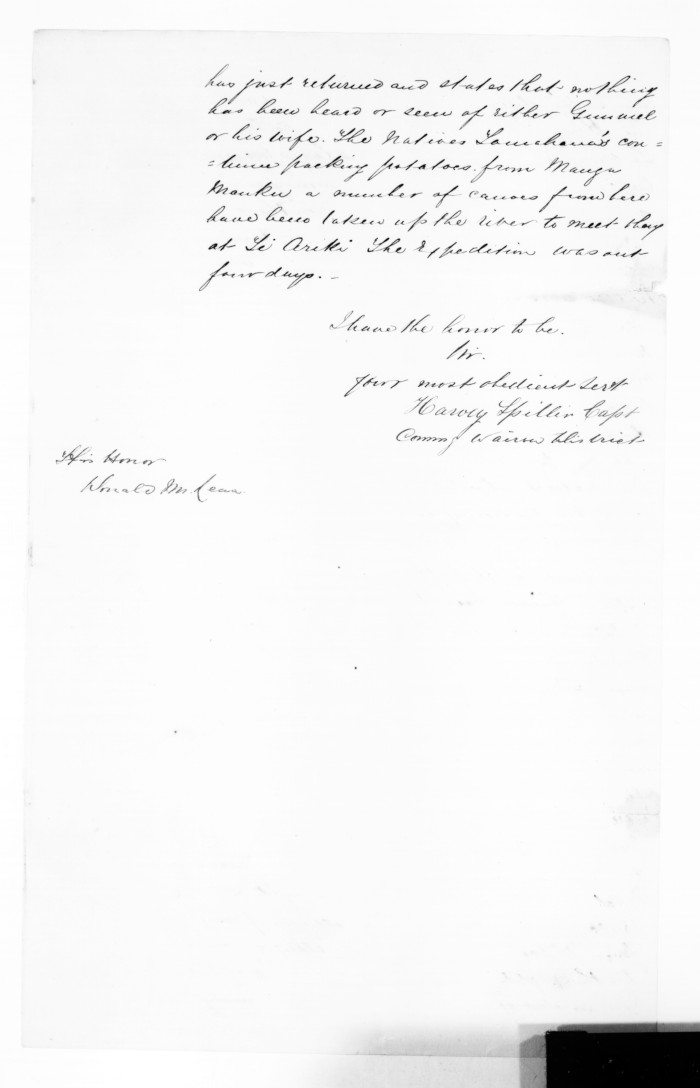 has just returned and states that nothing
has been heard or seen of either Gemmel
or his wife. The Natives Tamehana's con=
=tinue packing potatoes from Maunga
a number of canoes from here
have been taken up the river to meet they
at Te Ariki The Expedition was out
four days. _
I have the honor to be.
Sir.
your most obedient Sert
Harvey Spiller Capt
Comng Wairoa District
His Honor
Donald McLean